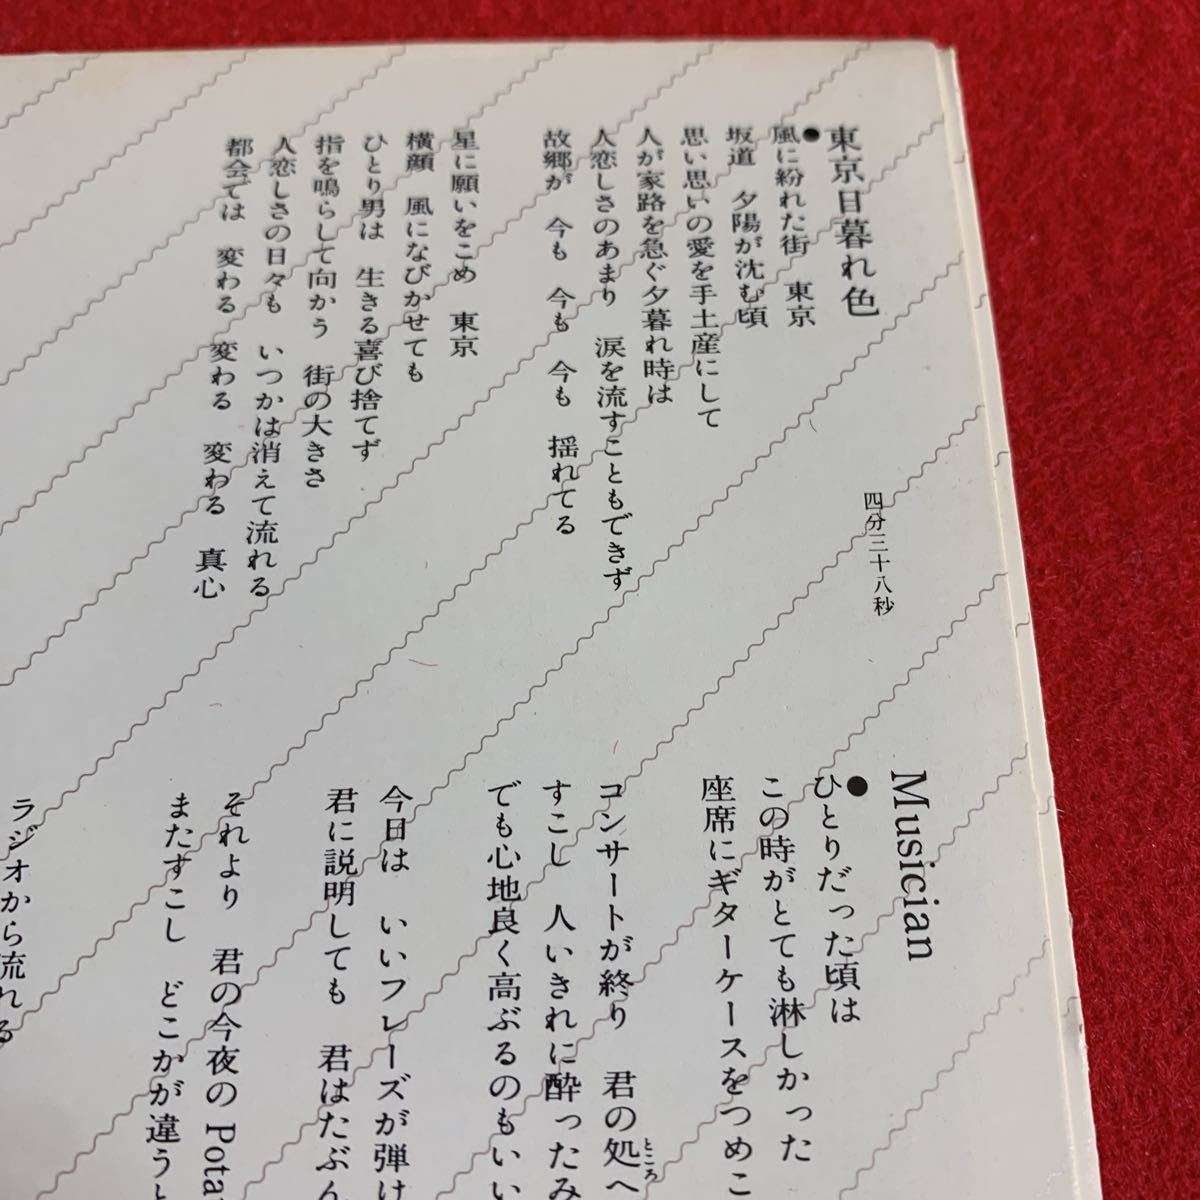 東京日暮れ色
四分三十八秒
●風に紛れた街　東京
坂道　夕陽が沈む頃
思い思いの愛を手土産にして
人が家路を急ぐ夕暮れ時は
人恋しさのあまり　涙を流すこともできず
故郷が　今も　今も　今も　揺れてる
星に願いをこめ　東京
横顔　風になびかせても
ひとり男は　生きる喜び捨てず
指を鳴らして向かう　街の大きさ
人恋しさの日々も　いつかは消えて流れる
都会では　変わる　変わる　変わる　真心
Musician
●ひとりだった頃は
この時がとても淋しかった
座席にギターケースをつめこ
コンサートが終り　君の処へ
ところ
すこし　人いきれに酔ったみ
でも心地良く高ぶるのもいい
今日は　いいフレーズが弾け
君に説明しても　君はたぶん
それより　君の今夜の Pota
またすこし　どこかが違うと
ラジオから流れる